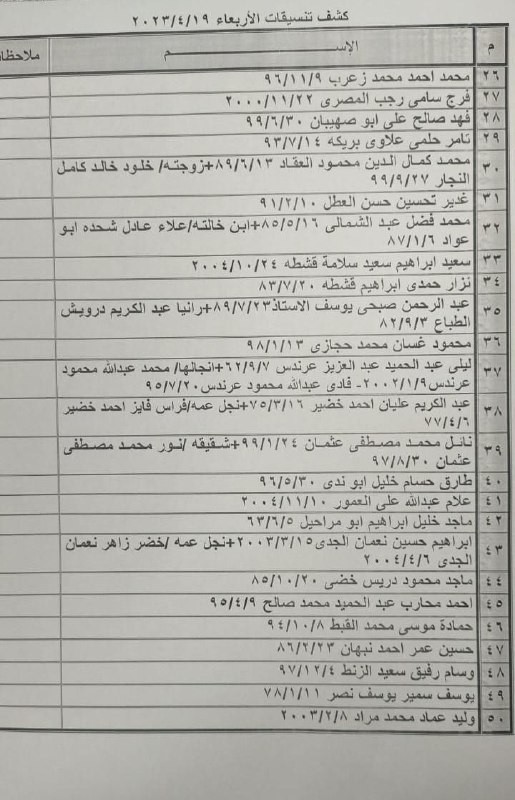 كشف تنسيقات الأربعاء ٢٠٢٣/٤/١٩
م الإســـــــم ملاحظات
٢٦ محمد احمد محمد زعرب ٩٦/١١/٩
٢٧ فرج سامى رجب المصرى ٢٠٠٠/١١/٢٢
٢٨ فهد صالح على ابو صهيبان ٩٩/٦/٣٠
٢٩ تامر حلمى علاوى بريكه ٩٣/٧/١٤
٣٠ محمد كمال الدين محمود العقاد ٨٩/٦/١٣+زوجته/ خلود خالد كامل
النجار ٩٩/٩/٢٧
٣١ غدير تحسين حسن العطل ٩١/٢/١٠
٣٢ محمد فضل عبد الشمالى ٨٥/٥/١٦+ابن خالته/علاء عادل شحده ابو
عواد ٨٧/١/٦
٣٣ سعيد ابراهيم سعيد سلامة قشطه ٢٠٠٤/١٠/٢٤
٣٤ نزار حمدى ابراهيم قشطه ٨٣/٧/٢٠
٣٥ عبد الرحمن صبحى يوسف الاستاذ ٨٩/٧/٢٣+رانيا عبد الكريم درويش
الطباع ٨٢/٩/٣
٣٦ محمود غسان محمد حجازى ٩٨/١/١٣
٣٧ ليلى عبد الحميد عبد العزيز عرندس ٦٢/٩/٧+انجالها/ محمد عبدالله محمود
عرندس ٢٠٠٢/١/٩- فادى عبدالله محمود عرندس ٩٥/٧/٢٠
٣٨ عبد الكريم عليان احمد خضير ٧٥/٣/١٦+نجل عمه/فراس فايز احمد خضير
٧٧/٤/٦
٣٩ نائل محمد مصطفى عثمان ٩٩/١/٢٤+شقيقه /نور محمد مصطفى
عثمان ٩٧/٨/٣٠
٤٠ طارق حسام خليل ابو ندى ٩٦/٥/٣٠
٤١ علام عبدالله على العمور ٢٠٠٤/١١/١٠
٤٢ ماجد خليل ابراهيم ابو مراحيل ٦٣/٦/٥
٤٣ ابراهيم حسين نعمان الجدى ٢٠٠٣/٣/١٥+نجل عمه /خضر زاهر نعمان
الجدى ٢٠٠٤/٤/٦
٤٤ ماجد محمود دريس خضى ٨٥/١٠/٢٠
٤٥ احمد محارب عبد الحميد محمد صالح ٩٥/٤/٩
٤٦ حمادة موسى محمد القبط ٩٤/١٠/٨
٤٧ حسين عمر احمد نبهان ٨٦/٢/٢٣
٤٨ وسام رفيق سعيد الزنط ٩٧/١٢/٤
٤٩ يوسف سمير يوسف نصر ٧٨/١/١١
٥٠ وليد عماد محمد مراد ٢٠٠٣/٢/٨